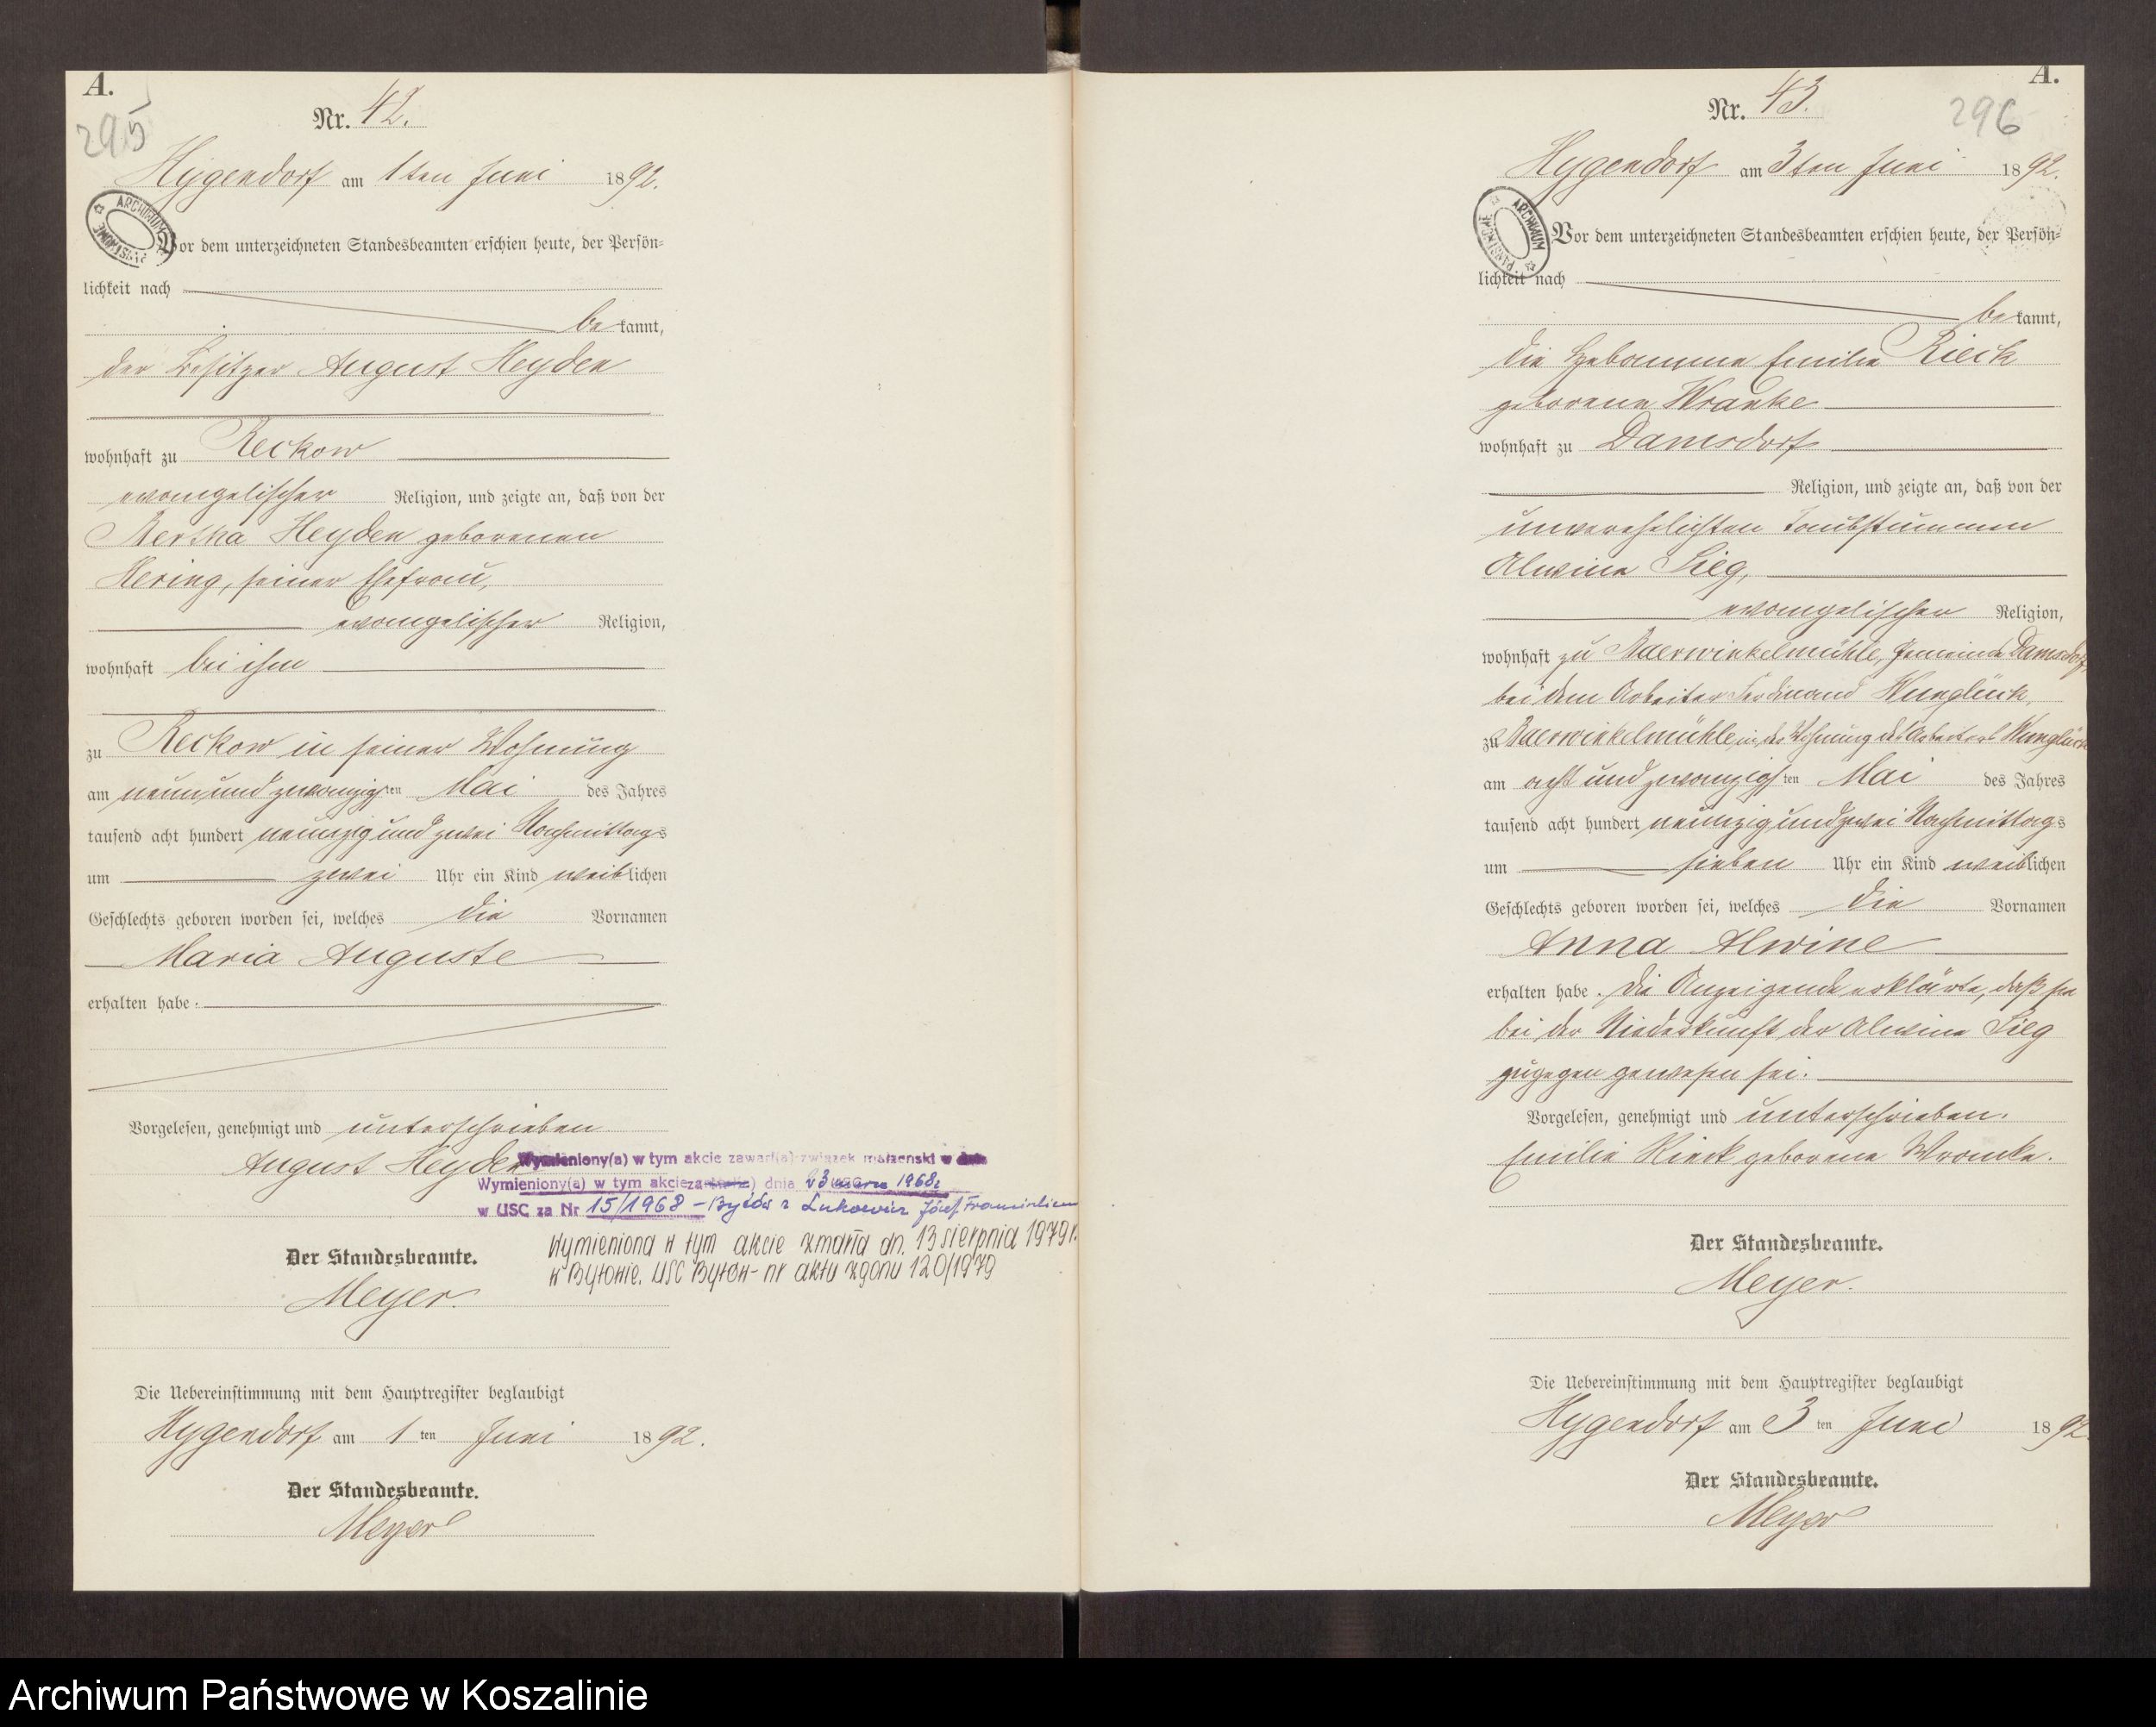 A.
295
Nr. 42.
Hygendorf am 1ten Juni 1892.
ARCHIWUM PAŃSTWOWE
Vor dem unterzeichneten Standesbeamten erschien heute, der Persön=
lichkeit nach
bekannt,
der Besitzer August Heyden
wohnhaft zu Reckow
evangelischer Religion, und zeigte an, daß von der
Bertha Heyden geborenen
Hering, seiner Ehefrau,
evangelischer Religion,
wohnhaft bei ihm
zu Reckow in seiner Wohnung
am neunundzwanzigsten Mai des Jahres
tausend acht hundert neunzig und zwei Nachmittags
um zwei Uhr ein Kind weiblichen
Geschlechts geboren worden sei, welches die Vornamen
Maria Auguste
erhalten habe.
Vorgelesen, genehmigt und unterschrieben
August Heyden
Wymieniony(a) w tym akcie zawarł(a) związek małżeński w dniu
Wymieniony(a) w tym akcie za dnia 23 marca 1968r
w USC za Nr 15/1968 - Bytów z Lukowicz Józef Franciszkiem
Wymieniona w tym akcie zmarła dn. 13 sierpnia 1979r.
w Bytowie. USC Bytów - nr aktu zgonu 120/1979
Der Standesbeamte.
Meyer.
Die Uebereinstimmung mit dem Hauptregister beglaubigt
Hygendorf am 1ten Juni 1892.
Der Standesbeamte.
Meyer
A.
296
Nr. 43.
Hygendorf am 3ten Juni 1892.
ARCHIWUM PAŃSTWOWE
Vor dem unterzeichneten Standesbeamten erschien heute, der Persön=
lichkeit nach
bekannt,
die Hebamme Emilie Rieck
geborene Wranke
wohnhaft zu Damsdorf
Religion, und zeigte an, daß von der
unverehelichten taubstummen
Alwine Sieg,
evangelischer Religion,
wohnhaft zu Auerwinkelmühle, Gemeinde Damsdorf,
bei dem Arbeiter Ferdinand Wunglück,
zu Auerwinkelmühle, in der Wohnung des Arbeiters Wunglück
am acht und zwanzigsten Mai des Jahres
tausend acht hundert neunzig und zwei Nachmittags
um sieben Uhr ein Kind weiblichen
Geschlechts geboren worden sei, welches die Vornamen
Anna Alwine
erhalten habe. Die Anzeigende erklärte, daß sie
bei der Niederkunft der Alwine Sieg
zugegen gewesen sei.
Vorgelesen, genehmigt und unterschrieben.
Emilie Rieck geborene Wronke.
Der Standesbeamte.
Meyer.
Die Uebereinstimmung mit dem Hauptregister beglaubigt
Hygendorf am 3ten Juni 1892
Der Standesbeamte.
Meyer
Archiwum Państwowe w Koszalinie